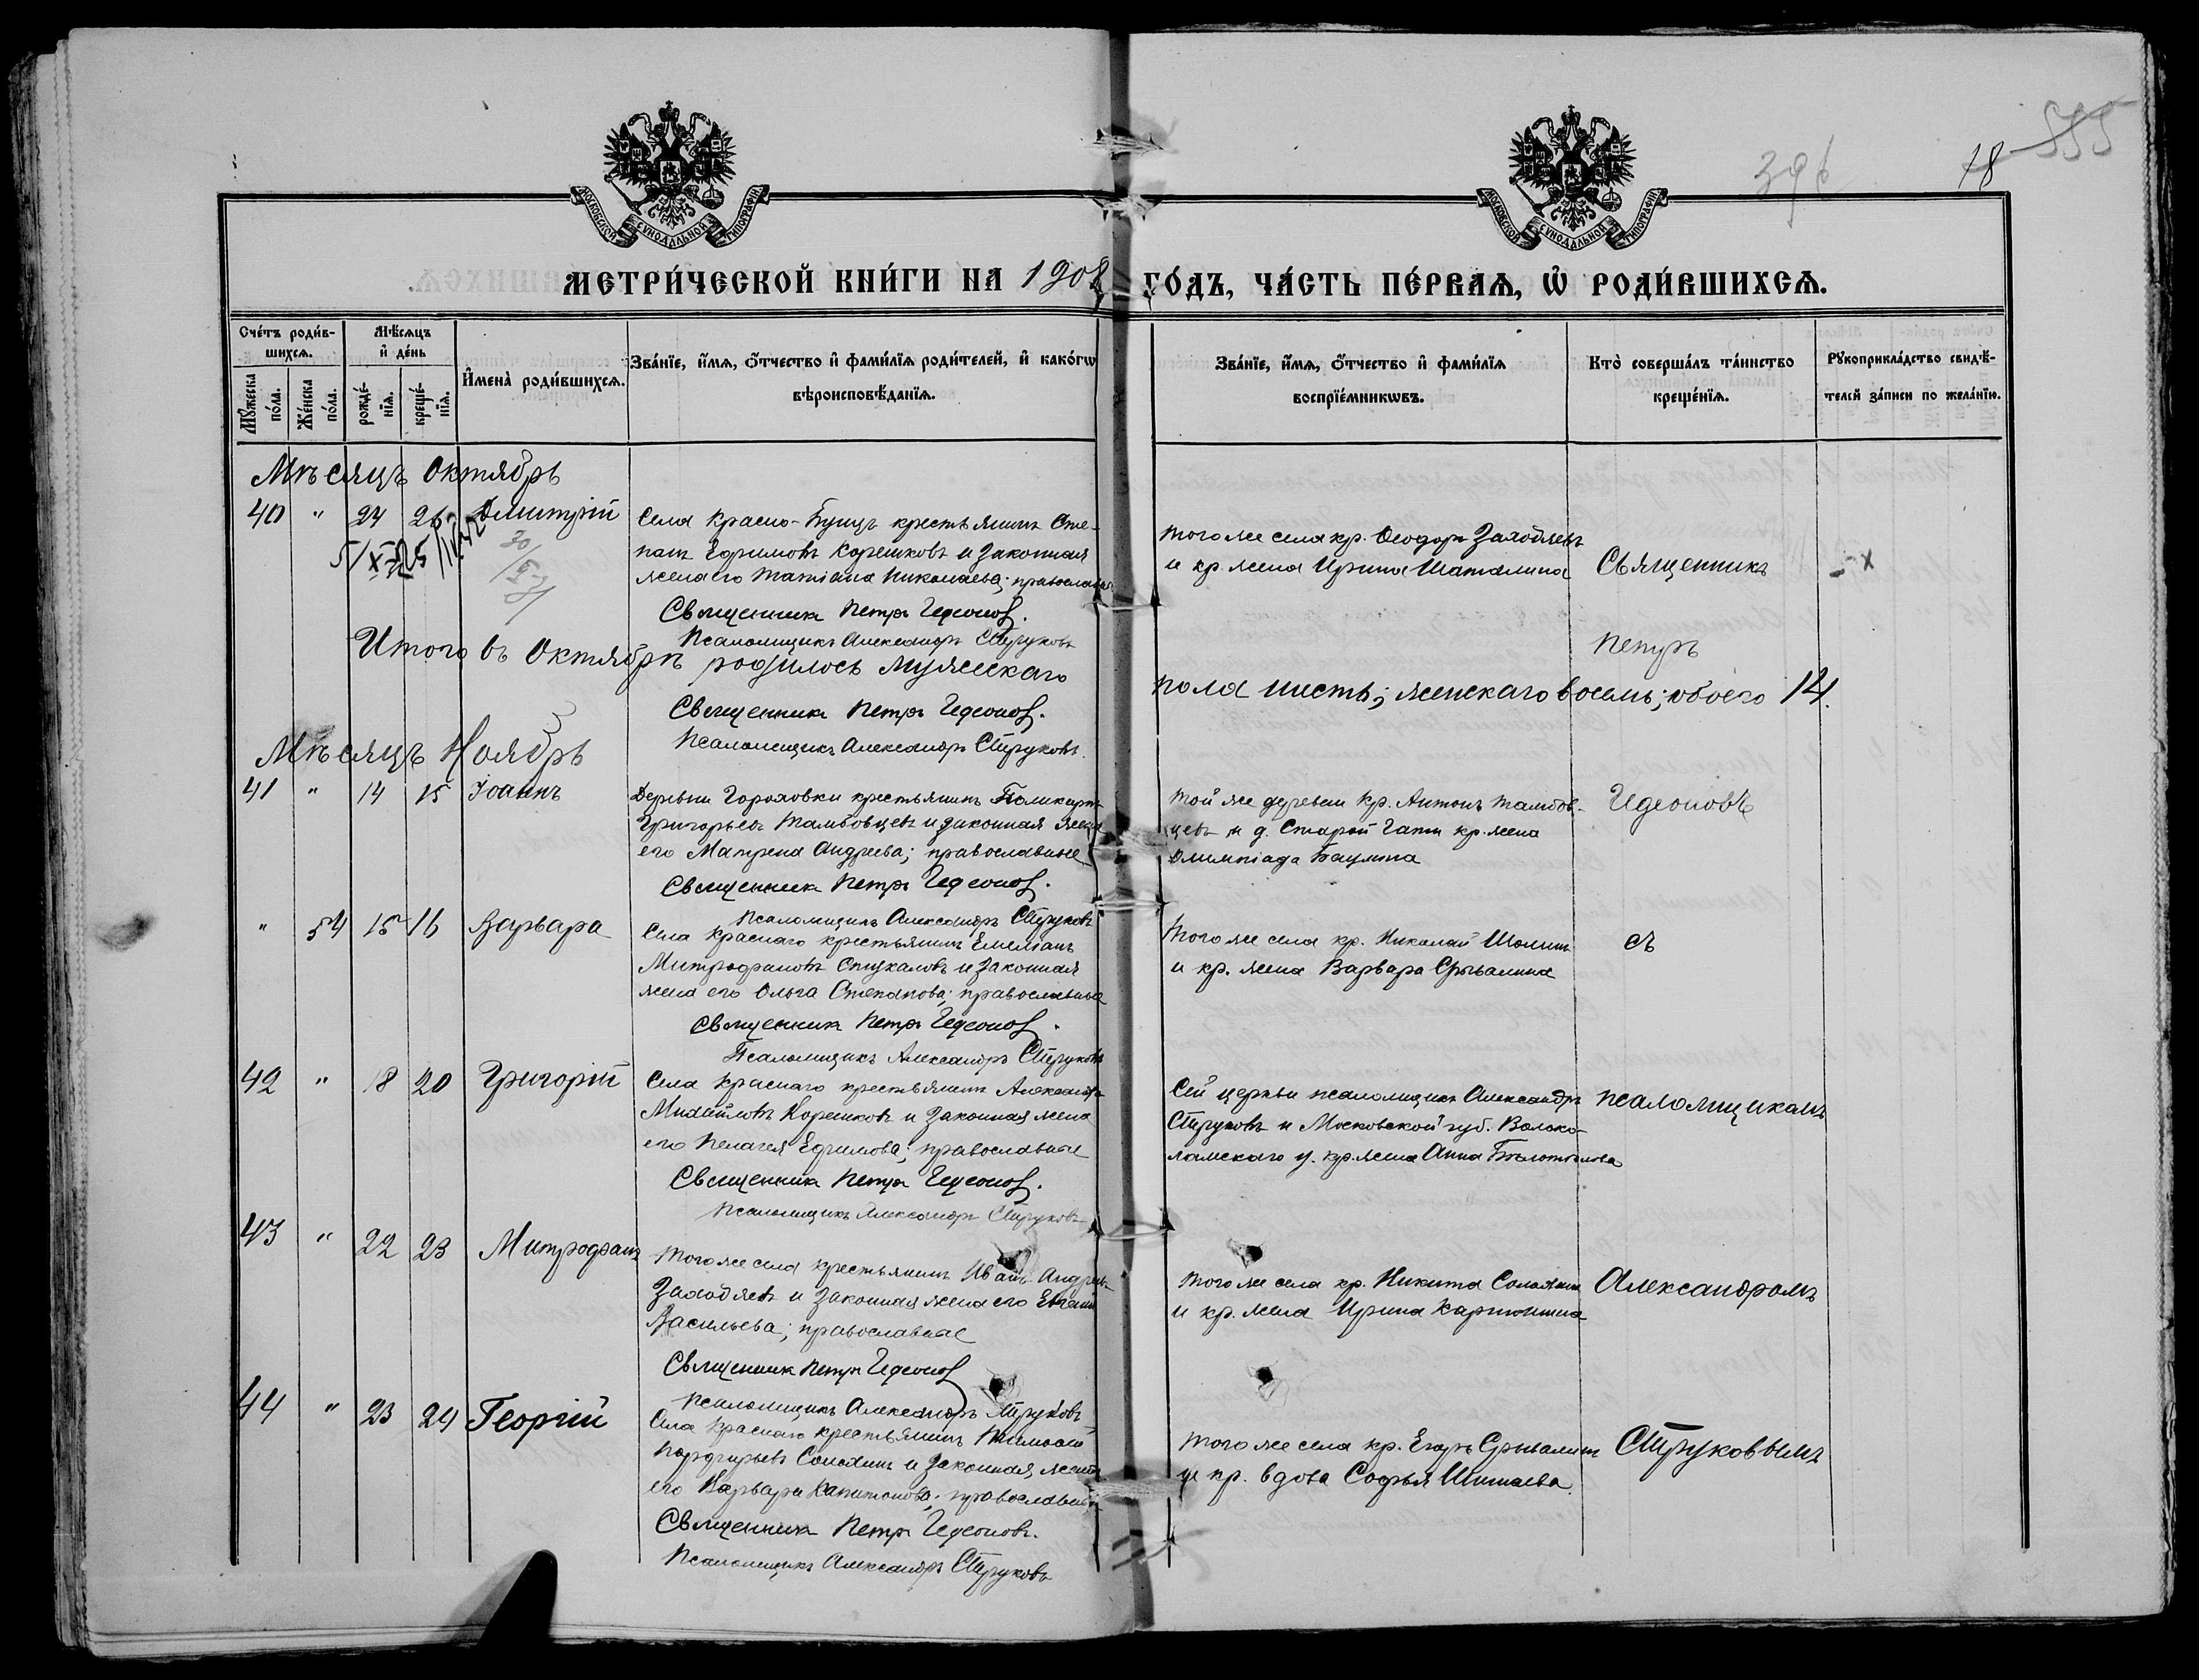 396
18
555
МОСКОВСКОЙ СУНОДАЛЬНОЙ ТИПОГРАФІИ
МОСКОВСКОЙ СУНОДАЛЬНОЙ ТИПОГРАФІИ
МЕТРИ́ЧЕСКОЙ КНИ́ГИ НА 1908 ГО́ДЪ, ЧА́СТЬ ПЕ́РВАѦ, Ѡ҆ РОДИ́ВШИХСѦ.
Сче́тъ роди́в-
шихсѧ.
Мꙋ́жеска по́ла.
Же́нска по́ла.
Мѣ́сѧцъ
и҆ де́нь
рожде́-нїѧ.
креще́-нїѧ.
И҆мена̀ роди́вшихсѧ.
Зва́нїе, и҆́мѧ, ѻ҆́тчество и҆ фами́лїѧ роди́телей, и҆ како́гѡ
вѣроисповѣ́данїѧ.
Зва́нїе, и҆́мѧ, ѻ҆́тчество и҆ фами́лїѧ
воспрїе́мникѡвъ.
Кто̀ соверша́лъ та́инство
креще́нїѧ.
Рꙋкоприкла́дство свидѣ́-
телей за́писи по жела́нїю.
Мѣсяцъ Октябрь
40 " 24 26 Димитрій
Села Красно- крестьянинъ Сте-
панъ Ефримовъ Корешковъ и законная
жена его Татіана Николаева; православные
Священникъ Петръ Гедеоновъ.
Псаломщикъ Александръ Струковъ
Того же села кр. Ѳеодоръ Заходяевъ
и кр. жена Ирина Шаталина
Священникъ
Петръ
Итого въ Октябрѣ родилось мужескаго
пола шесть; женскаго восемь; обоего 14.
Священникъ Петръ Гедеоновъ.
Псаломщикъ Александръ Струковъ.
Мѣсяцъ Ноябрь
41 " 14 15 Іоаннъ
Деревни Гороховки крестьянинъ Поликарпъ
Григорьевъ Тамбовцевъ и законная жена
его Матрена Андреева; православные
Священникъ Петръ Гедеоновъ.
Псаломщикъ Александръ Струковъ
Той же деревни кр. Антонъ Тамбов-
цевъ и д. Старой Гати кр. жена
Олимпіада Баулина
Гедеоновъ
" 54 15 16 Варвара
Села Краснаго крестьянинъ Емеліанъ
Митрофановъ Стукаловъ и законная
жена его Ольга Степанова; православные
Священникъ Петръ Гедеоновъ.
Псаломщикъ Александръ Струковъ
Того же села кр. Николай
и кр. жена Варвара Срывалина
съ
42 " 18 20 Григорій
Села Краснаго крестьянинъ Александръ
Михайловъ Корешковъ и законная жена
его Пелагея Ефримова; православные
Священникъ Петръ Гедеоновъ.
Псаломщикъ Александръ Струковъ
Сей церкви псаломщикъ Александръ
Струковъ и Московской губ. Волоко-
ламскаго у. кр. жена Анна
псаломщикомъ
43 " 22 23 Митрофанъ
Того же села крестьянинъ Иванъ Андреевъ
Заходяевъ и законная жена его Евгенія
Васильева; православные
Священникъ Петръ Гедеоновъ
Псаломщикъ Александръ Струковъ
Того же села кр. Никита
и кр. жена Ирина Картошина
Александромъ
44 " 23 24 Георгій
Села Краснаго крестьянинъ Тимофей
Порфирьевъ и законная жена
его Варвара Капитонова; православные
Священникъ Петръ Гедеоновъ.
Псаломщикъ Александръ Струковъ
Того же села кр. Егоръ Срывалинъ
и кр. вдова Софья Шишаева.
Струковымъ